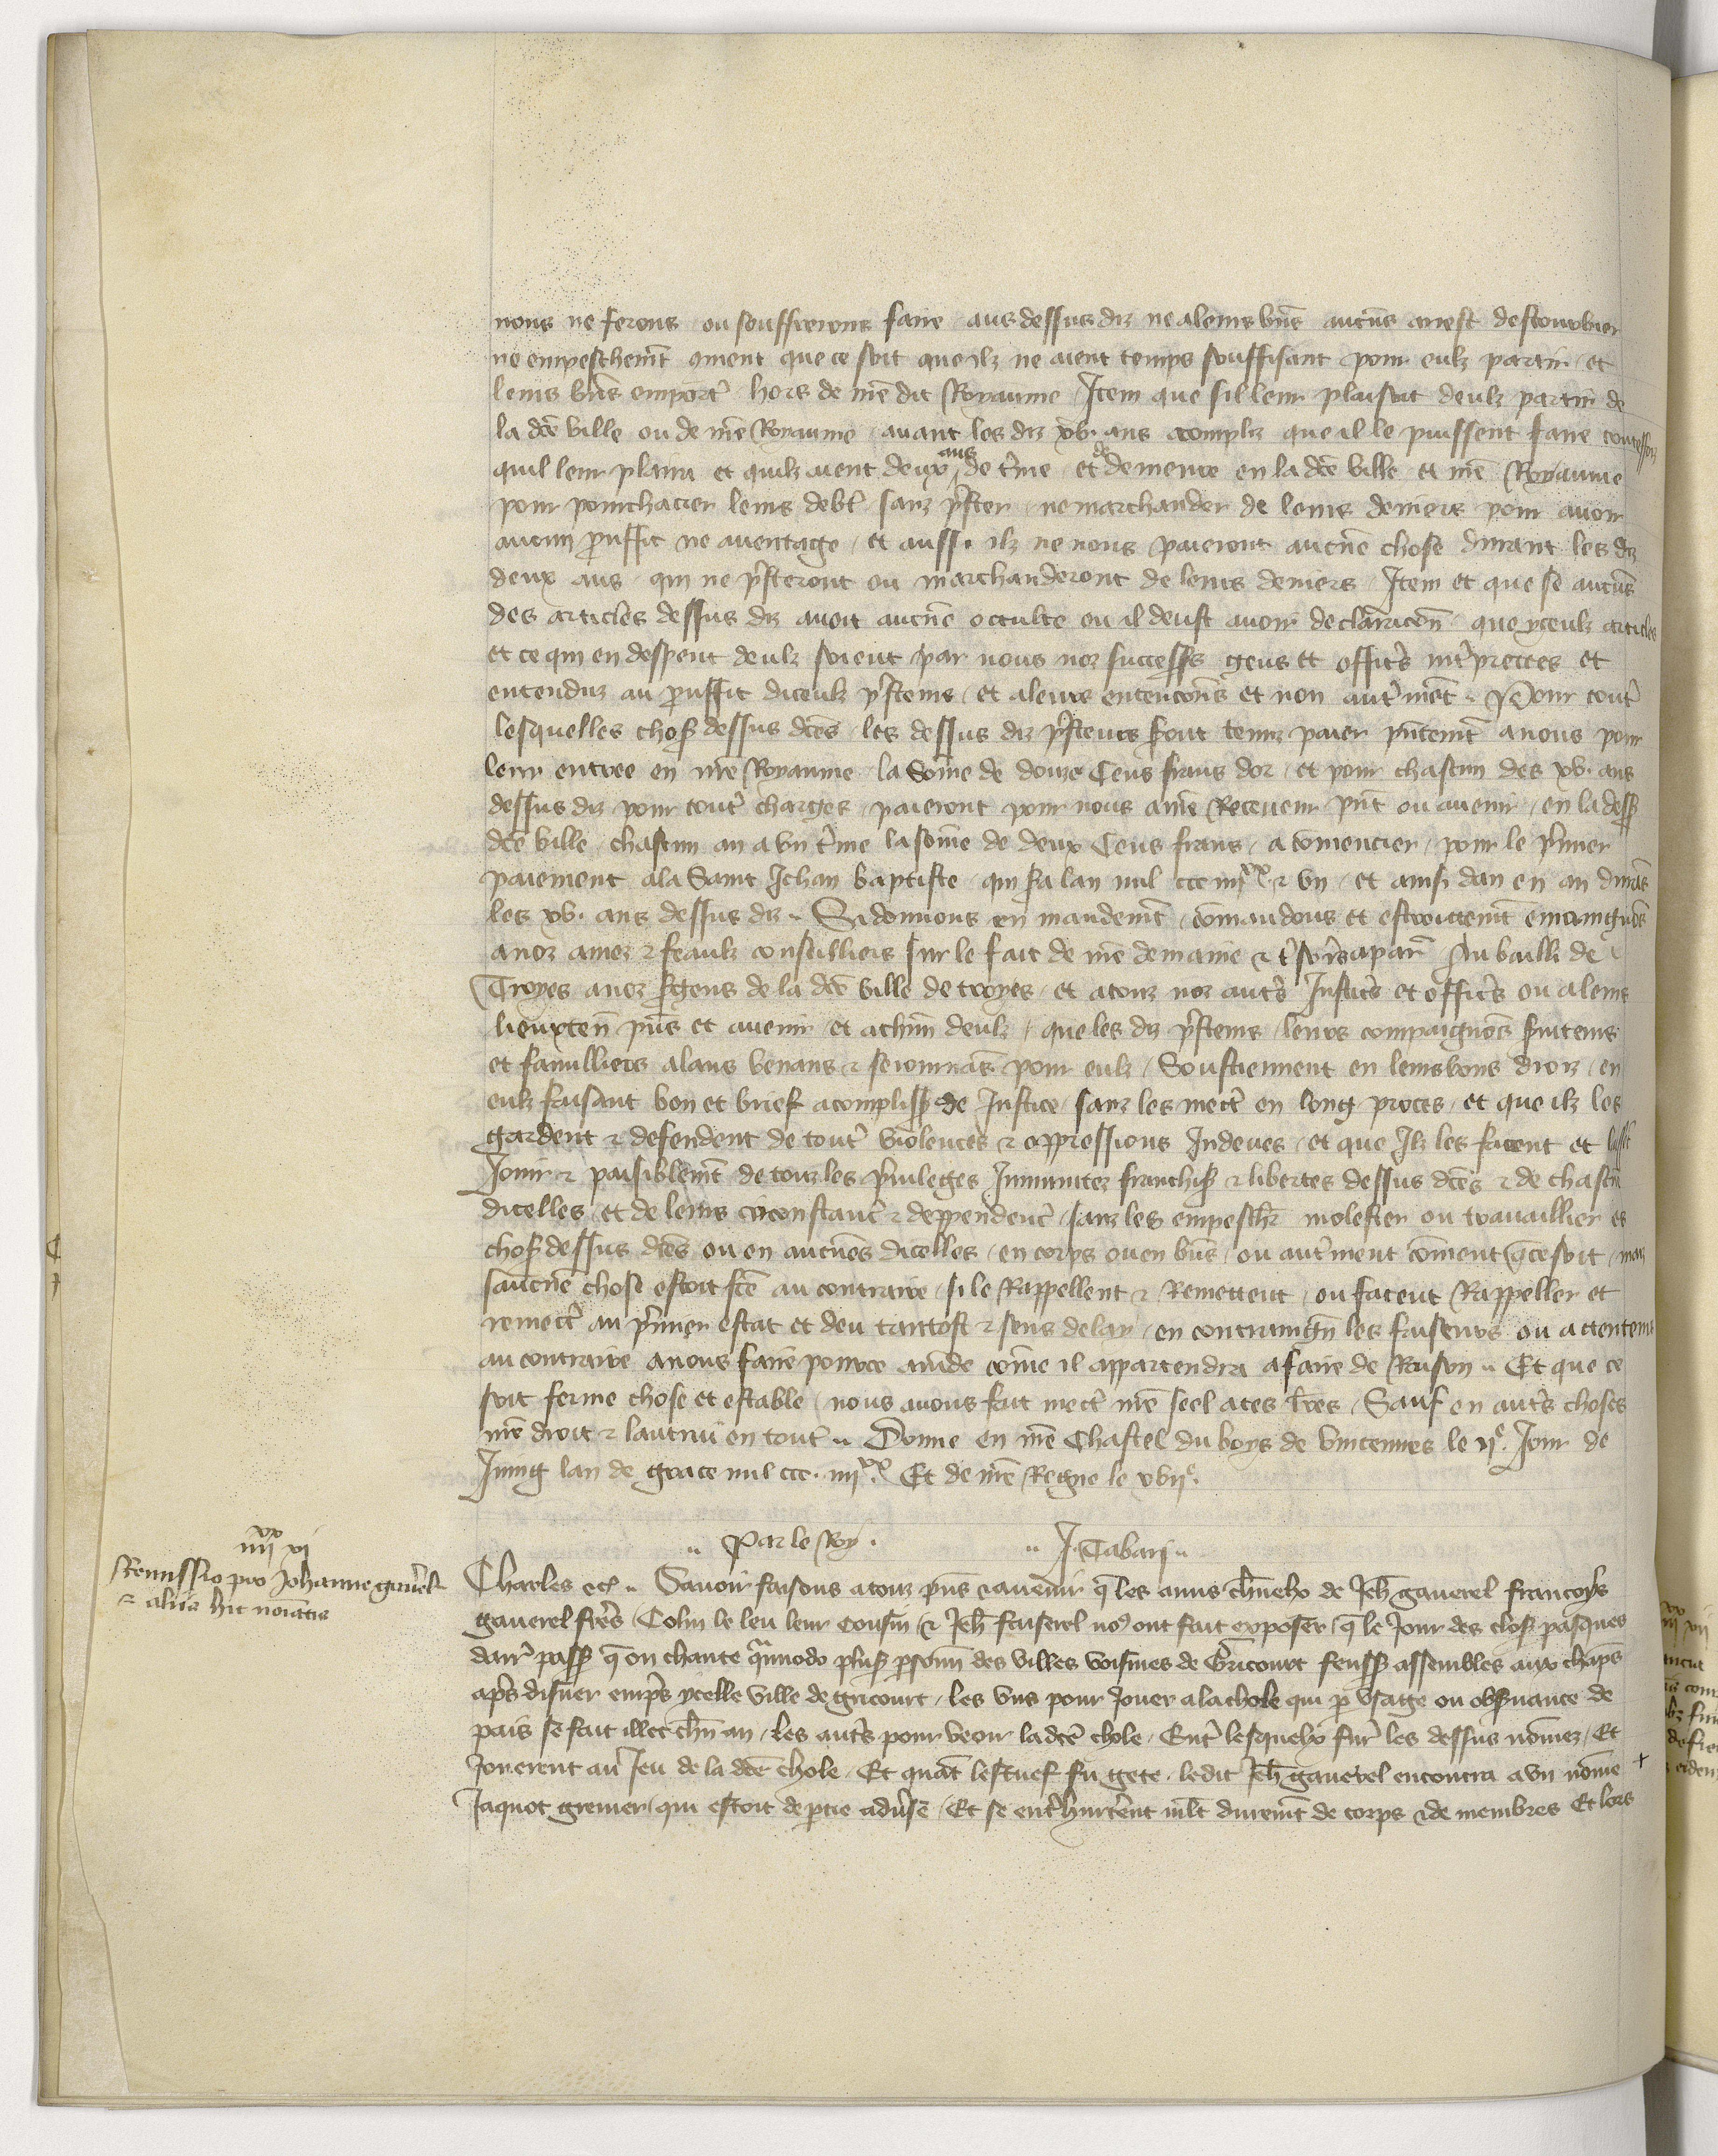 nous ne ferons ou souffrerons faire aus dessus diz ne a leurs bñs aucũs arrest destourbier
ne empeschemẽt cõment que ce soit que ilz ne aient temps souffisant pour eulz partir et
leurs biẽs emport̾ hors de nr̃e dit Royaume Item que sil leur plaisoit deulz partir de
la dc̃e ville ou de nr̃e Royaume auant les diz xv. ans acompliz que il le puissent faire toutesfoiz
quil leur plaira et quilz aient deux ans de t̾me et de demeure en la dc̃e ville et nr̃e Royaume
pour pourchacier leurs debt̾ sanz p̾ster ne marchander de leurs deniers pour auoir
aucun prouffit ne auentage et aussi ilz ne nous paieront aucũe chose durant les dz
deux ans qui ne p̾steront ou marchanderont de leurs deniers Item et que se aucũs
des articles dessus diz auoit aucũe occulte ou il deust auoir declaracõn que yceulz articles
et ce qui en despent deulz soient par nous noz successrs gens et offic̾s int̾pretees et
entenduz au prouffit diceulz p̾steurs et a leurs entencõns et non aut̾mẽt Pour tout̾
lesquelles chos̾ dessus dc̃es les dessus diz p̾steurs sont tenuz paier pñtemẽt a nous pour
leur entree en nr̃e Royaume la Som̃e de douze Cens frans dor et pour chascun des xv. ans
dessus diz pour tout̾ charges paieront pour nous a nr̃e Receueur pñt ou auenir en la dess̾
dc̃e ville chascun an a vn t̾me la som̃e de deux Cens frans a com̃encier pour le p̾mier
paiement a la Saint Jehan baptiste qui s̾a lan mil ccc iiij xx ⁊ vn et ainsi dan en an durãs
les xv. ans dessus diz Si donnons en mandemẽt com̃andons et estroittemẽt enioingnõs
a noz amez ⁊ feaulz conseilliers sur le fait de nr̃e demaine ⁊ t̾sor̾s a par̾ Au bailli de
Troyes a noz s̾gens de la dc̃e ville de troyes et a touz noz aut̾s Justic̾s et offic̾s ou a leurs
lieuxteñ pñs et auenir et a chũn deulz que les diz p̾steurs leurs compaignõs fauteurs
et familliers alans venans ⁊ seiournãs pour eulz Soustiennent en leurs bons droiz en
eulz faisant bon et brief acompliss̾ de Justice sanz les mect̾ en long proces et que ilz les
gardent ⁊ defendent de tout̾ violences ⁊ oppressions Indeues et que Ilz les facent et laiss̾t
Joir ⁊ paisiblemẽt de touz les p̾uileges Immunitez franchis̾ ⁊ libertes dessus dc̃es ⁊ de chascũe
dicelles et de leurs circonstanc̾ ⁊ deppendenc̾ sanz les empesch̾ molester ou trauaillier es
chos̾ dessus dc̃es ou en aucũes dicelles en corps ou en biẽs ou aut̾ment com̃ent q̃ ce soit mais
saucũe chose estoit fc̃e au contraire si le Rappellent ⁊ Remettent ou facent Rappeller et
remect̾ au p̾mier estat et deu tantost ⁊ sens delay en contraingñ les faiseurs ou attenteurs
au contraire a nous faire pource amde com̃e il appartendra a faire de Raison Et que ce
soit ferme chose et estable nous auons fait mect̾ nr̃e seel a ces lr̃es Sauf en aut̾s choses
nr̃e droit ⁊ lautrui en tout̾ Donne en nr̃e Chastel du boys de vincennes le ije. Jour de
Juing lan de grace mil ccc. iiij xx Et de nr̃e Regne le xvije.
Par le Roy. J. Tabari
iiij xx xi
Remissio pro Johanne gau̾el
⁊ aliis hic noĩatis
Charles etc̾ Sauoir faisons a touz pñs ⁊ auenir q̃ les amis ch̾nelx de Jeh̾ gauerel francoys
gauerel fr̃es Colin le leu leur cousin ⁊ Jeh̾ fauserel no9 ont fait exposer q̃ le Jour des clos̾ pasques
darr̾ pass̾ q̃ on chante q̃simodo plus̾ psoñn des villes voisines de Gricourt feuss̾ assembles aux chãps
ap̃s disner emp̾s ycelle ville de gricourt les vns pour Jouer a la chole qui p vsaige ou obs̾uance de
pais se fait illec chũ an les aut̾s pour veoir la dc̃e chole Ent̾ lesquelx fur̾ les dessus nom̃ez Et
Jouerent au Jeu de la dc̃e chole Et quãt lestuef fu gete ledit Jeh̾ gauerel encontra a vn nom̃e
Jaquot grenier qui estoit de ptie adu̾se Et se ent̾hurterẽt ml̃t duremẽt de corps ⁊ de membres Et lors